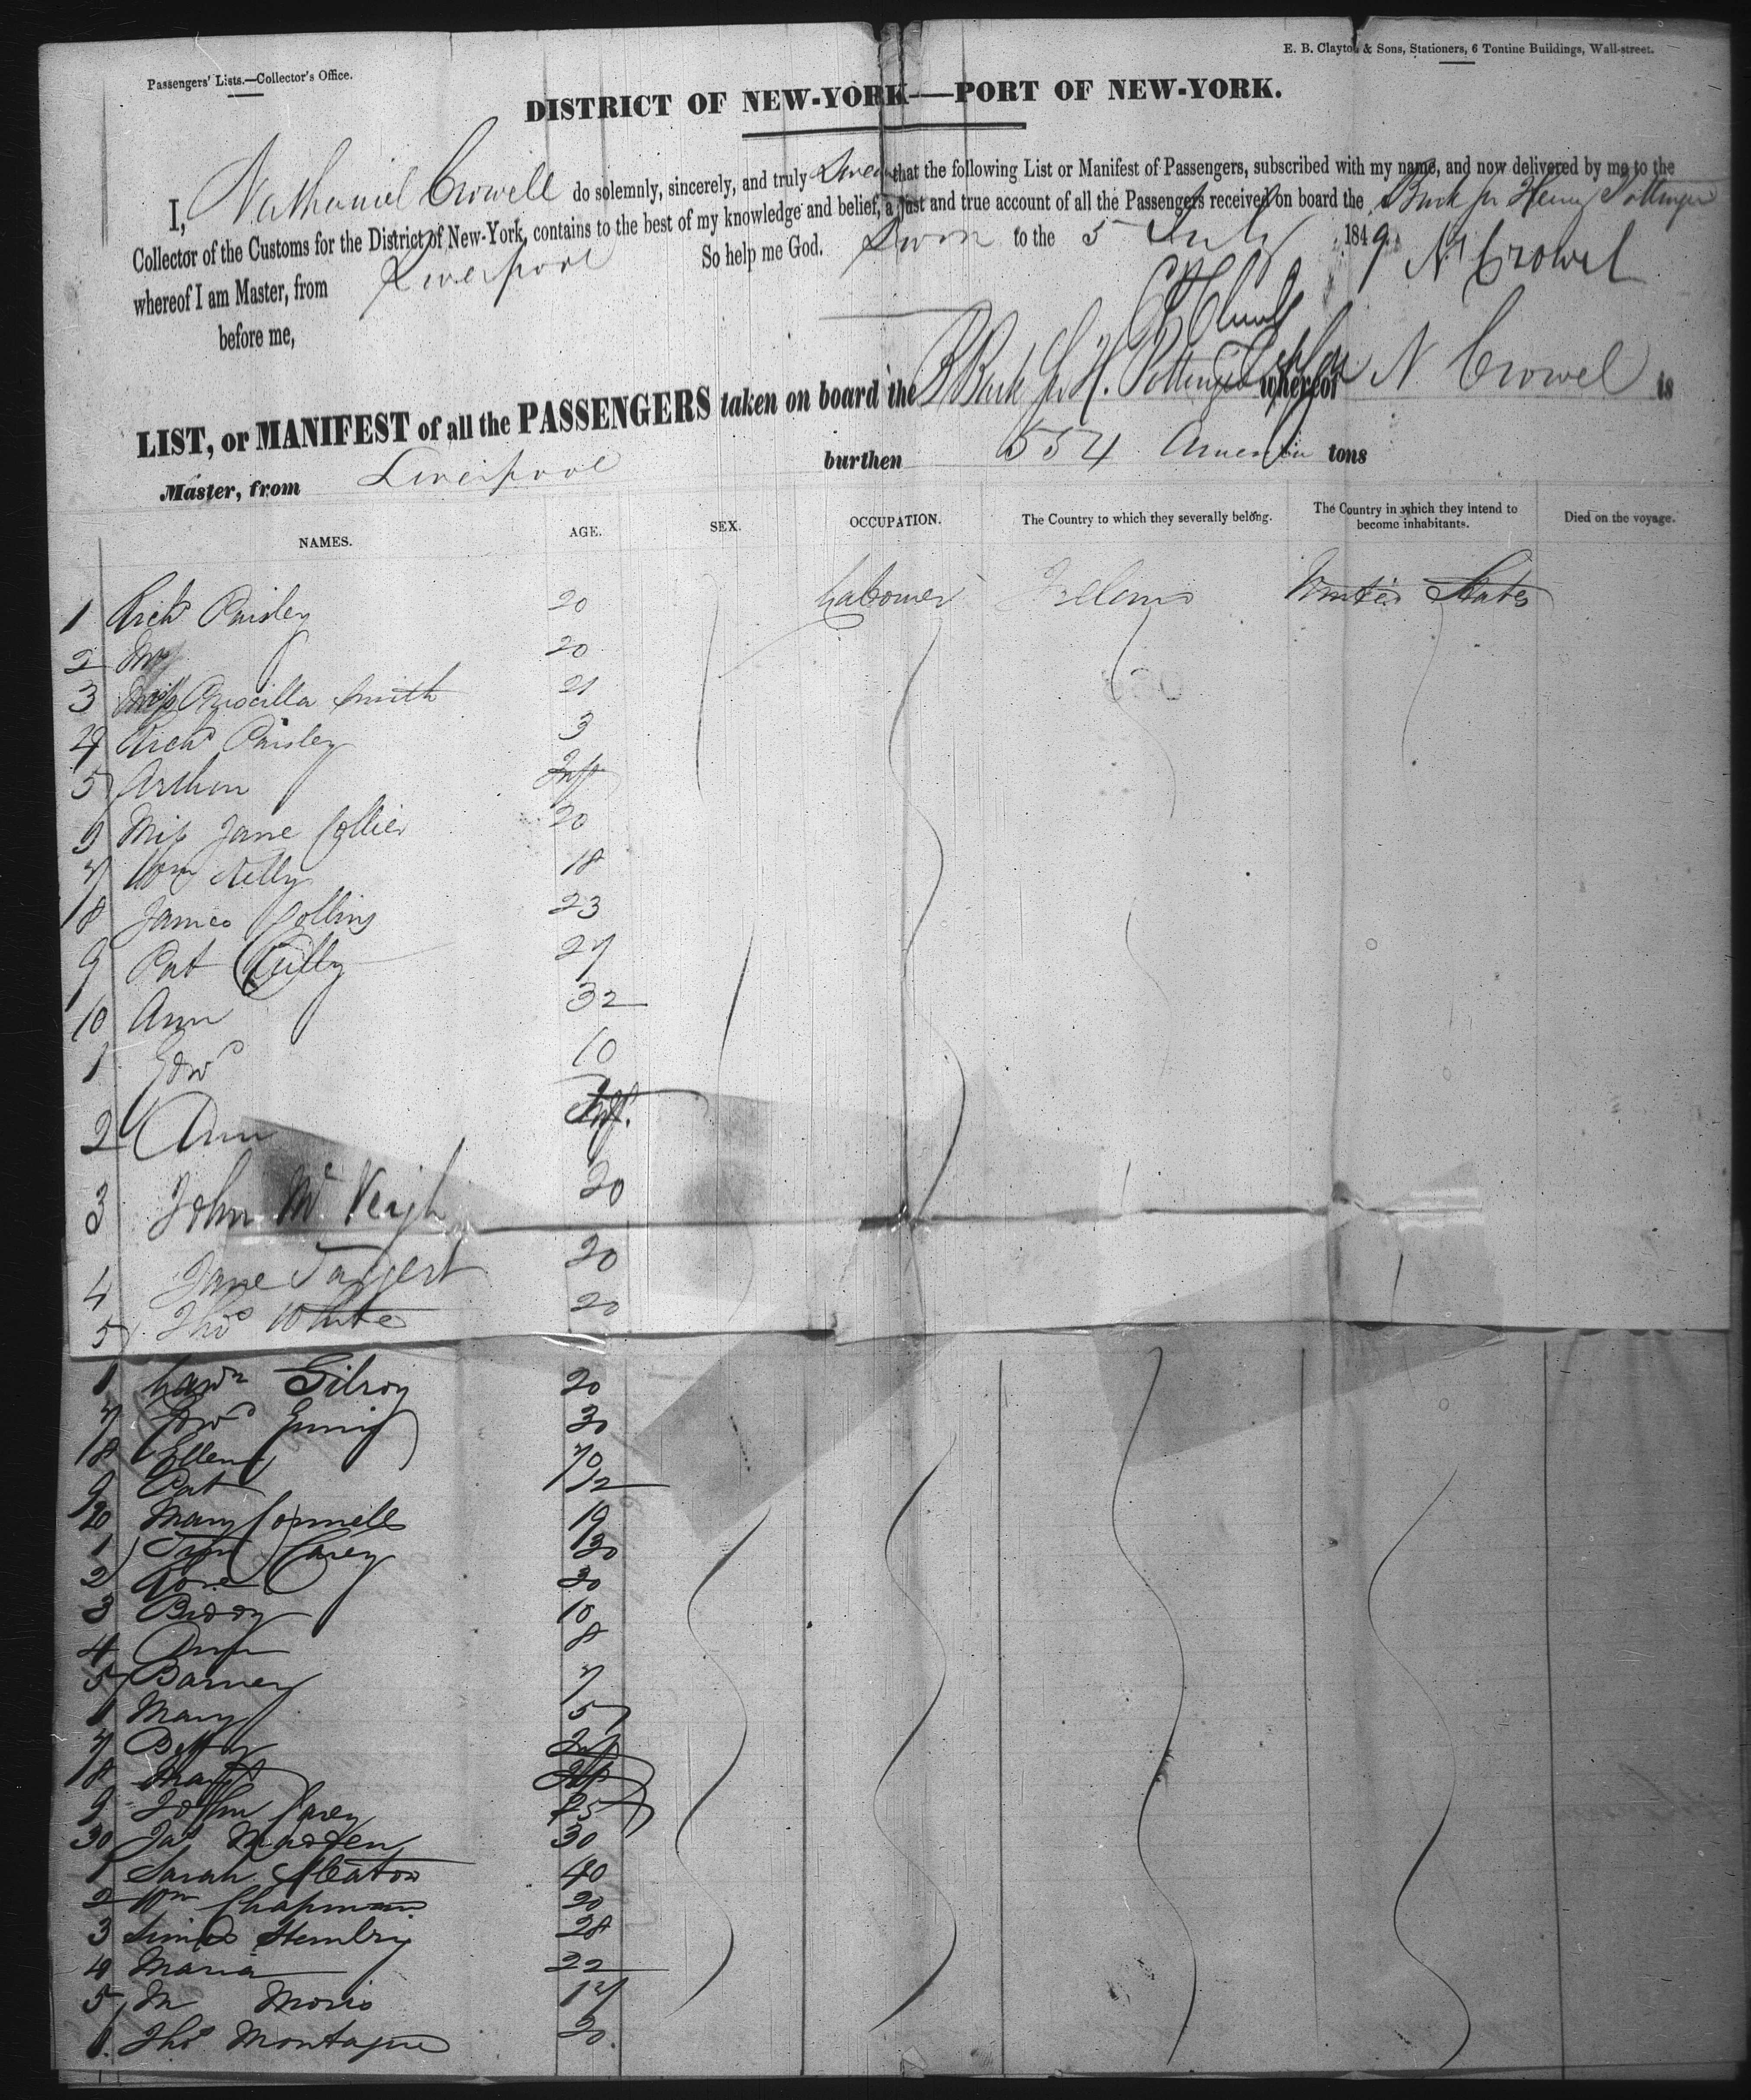 Passengers' Lists.—Collector's Office.
E. B. Clayton & Sons, Stationers, 6 Tontine Buildings, Wall-street.
DISTRICT OF NEW-YORK—PORT OF NEW-YORK.
I, Nathaniel Crowell do solemnly, sincerely, and truly Swear that the following List or Manifest of Passengers, subscribed with my name, and now delivered by me to the
Collector of the Customs for the District of New-York, contains to the best of my knowledge and belief, a just and true account of all the Passengers received on board the Bark Henry Pottinger
whereof I am Master, from Liverpool So help me God. Sworn to the 5 July 1849 N Crowel
before me,
LIST, or MANIFEST of all the PASSENGERS taken on board the B Bark H. Pottinger whereof N Crowel is
Master, from Liverpool burthen 554 tons
NAMES. AGE. SEX. OCCUPATION. The Country to which they severally belong. The Country in which they intend to become inhabitants. Died on the voyage.
1 Archd Paisley 20 Labourer Ireland United States
2 Mrs 20
3 Miss Priscilla Smith 21
4 Archd Paisley 3
5 Arthur Inft
6 Miss Jane Collier 20
7 Wm Kelly 18
8 James Collins 23
9 Pat Reilly 27
10 Ann 32
1 Edwd 10
2 Ann Inft.
3 John McVeigh 20
4 Jane Taggert 20
5 Thos White 20
6 Lawn Gilroy 20
7 Edwd 30
8 Ellen
9 Pat
20 Mary Connell 19
1 Carey 30
2 Rose 30
3 Biddy 10
4 Ann 8
5 Barney 7
6 Mary 5
7 Betty Inf
8 Inf
9 John Carey 25
30 Jas Madden 30
1 Sarah Heaton 40
2 Wm Chapman 20
3 28
4 Maria 22
5 M Moris 17
6 Thos Montague 20